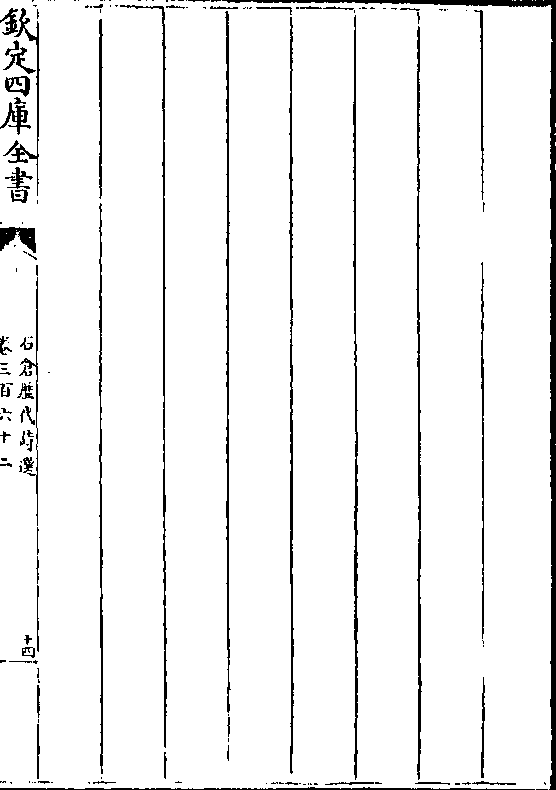 欽定四庫全書
石倉歷代詩選
卷三百六十二
十四